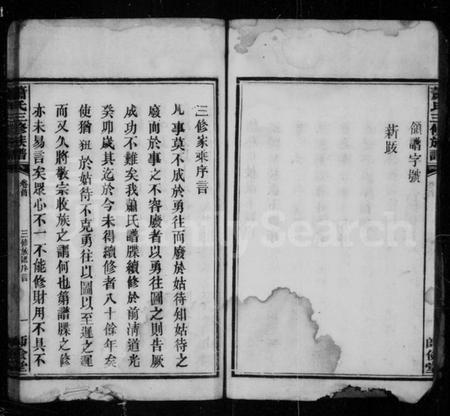 領譜字號
新跋
蕭氏三修族譜
師儉堂
三修家乘序言
凡事莫不成於勇往而廢於姑待知姑待之
廢而於事之不容廢者以勇往圖之則告厥
成功不難矣我蕭氏譜牒續修於前清道光
癸卯歲其迄於今未得續修者八十餘年矣
使猶狃於姑待不克勇往以圖以至遲之遲
而又久將敬宗收族之謂何也第譜牒之修
亦未易言矣眾心不一不能修財用不具不
蕭氏三修族譜
卷首
三修族譜序言
一
師儉堂
FamilySearch